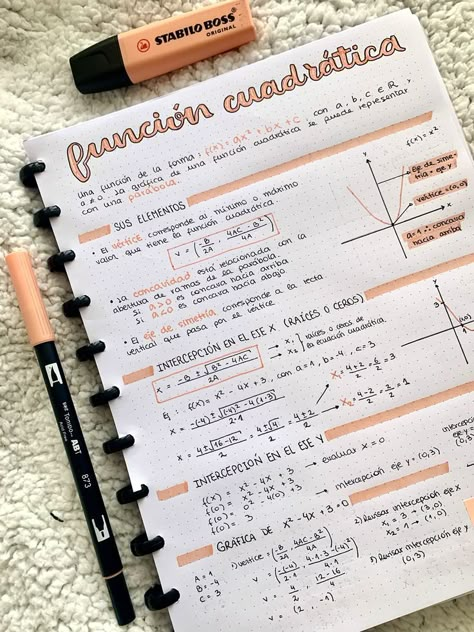 STABILO BOSS
ORIGINAL
función cuadrática
Una función de la forma: f(x) = ax² + bx + c con a, b, c ∈ ℝ y
a ≠ 0. La gráfica de una función cuadrática se puede representar
con una parábola.
f(x) = x²
Eje de sime-
tría = eje y
vértice = (0,0)
a=1 ∴ concava
hacia arriba
y
x
SUS ELEMENTOS
• El vértice corresponde al mínimo o máximo
valor que tiene la función cuadrática.
V = (-B/2A , 4AC - B²/4A)
• La concavidad está relacionada con la
abertura de ramas de la parábola.
Si a > 0 es concava hacia arriba
Si a < 0 es concava hacia abajo
• El eje de simetría corresponde a la recta
vertical que pasa por el vértice.
INTERCEPCIÓN EN EL EJE X (RAÍCES O CEROS)
X = -B ± √B² - 4AC / 2A
→ x₁
→ x₂
raíces o ceros de
la ecuación cuadrática.
Ej: f(x) = x² - 4x + 3, con a=1, b=-4, c=3
X = -(-4) ± √(-4)² - 4(1·3) / 2·1
X = 4 ± √16-12 / 2 = 4 ± √4 / 2 = 4 ± 2 / 2
X₁ = 4+2/2 = 6/2 = 3
X₂ = 4-2/2 = 2/2 = 1
INTERCEPCIÓN EN EL EJE Y
f(x) = x² - 4x + 3 → evaluar x = 0
f(0) = 0² - 4(0) + 3
f(0) = 3 → Intercepción eje y = (0,3)
GRÁFICA DE x² - 4x + 3 = 0
A = 1
B = -4
C = 3
1) vértice = (-B/2A , 4AC - B²/4A)
V = (-(-4)/2·1 , 4·1·3 - (-4)²/4·1)
V = (4/2 , 12-16/4)
V = (2, -1)
2) Revisar intercepción eje x
x₁ = 3 → (3,0)
x₂ = 1 → (1,0)
3) Revisar intercepción eje y
(0,3)
Tombow
ABT
873